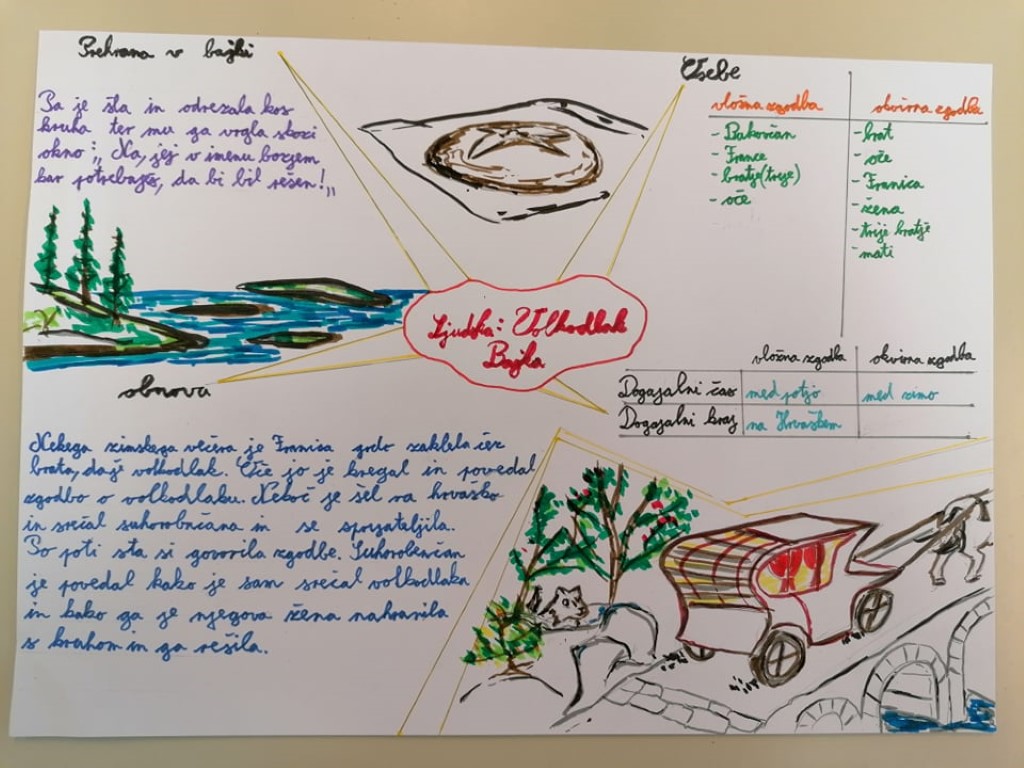 Prehrana v bajki
Pa je šla in odrezala kos
kruha ter mu ga vrgla skozi
okno: "Na, jej v imenu božjem
kar potrebuješ, da bi bil rešen!"
Osebe
vložna zgodba
okvirna zgodba
- Bakovčan
- France
- bratje (trije)
- oče
- brat
- oče
- Franica
- žena
- trije bratje
- mati
Ljudska: Volkodlak
Bajka
vložna zgodba okvirna zgodba
Dogajalni čas med potjo med zimo
Dogajalni kraj na Hrvaškem
obnova
Nekega zimskega večera je Franica grdo zaklela čez
brata, da je volkodlak. Oče jo je kregal in povedal
zgodbo o volkodlaku. Nekoč je šel na hrvaško
in srečal suhorobnčana in se sprijateljila.
Po poti sta si govorila zgodbe. Suhorobenčan
je povedal kako je sam srečal volkodlaka
in kako ga je njegova žena nahranila
s kruhom in ga rešila.